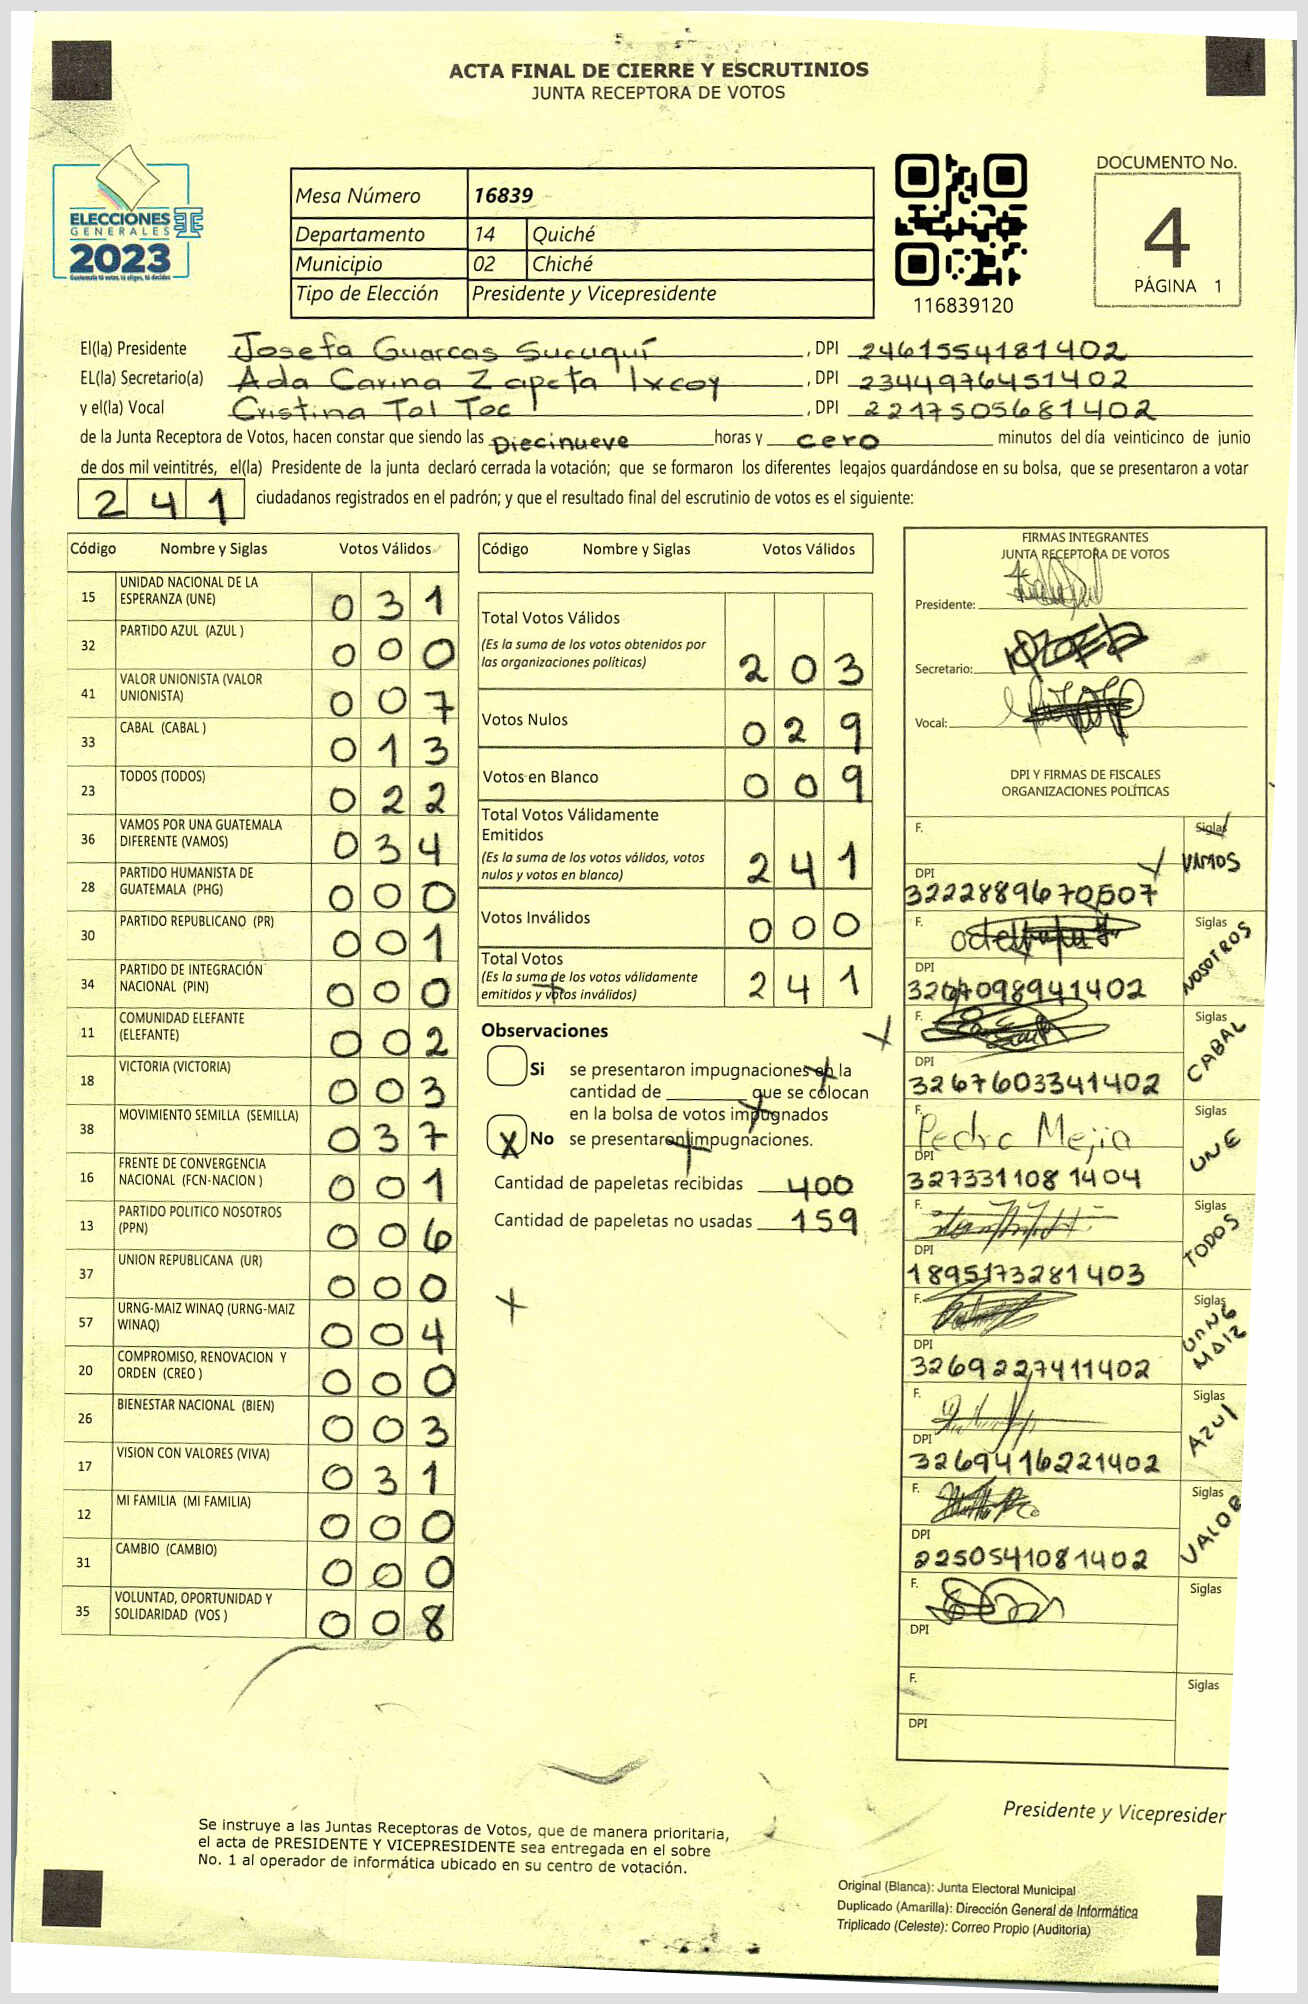 ACTA FINAL DE CIERRE Y ESCRUTINIOS
JUNTA RECEPTORA DE VOTOS
ELECCIONES
GENERALES
2023
Guatemala tú votas, tú eliges, tú decides
Mesa Número 16839
Departamento 14 Quiché
Municipio 02 Chiché
Tipo de Elección Presidente y Vicepresidente
116839120
DOCUMENTO No.
4
PÁGINA 1
El(la) Presidente Josefa Guarcas Sucuquí , DPI 2461554181402
EL(la) Secretario(a) Ada Carina Zapeta Ixcoy , DPI 2344976451402
y el(la) Vocal Cristina Tol Toc , DPI 2217505681402
de la Junta Receptora de Votos, hacen constar que siendo las Diecinueve horas y cero minutos del día veinticinco de junio
de dos mil veintitrés, el(la) Presidente de la junta declaró cerrada la votación; que se formaron los diferentes legajos guardándose en su bolsa, que se presentaron a votar
241 ciudadanos registrados en el padrón; y que el resultado final del escrutinio de votos es el siguiente:
Código Nombre y Siglas Votos Válidos
15 UNIDAD NACIONAL DE LA ESPERANZA (UNE) 031
32 PARTIDO AZUL (AZUL ) 000
41 VALOR UNIONISTA (VALOR UNIONISTA) 007
33 CABAL (CABAL ) 013
23 TODOS (TODOS) 022
36 VAMOS POR UNA GUATEMALA DIFERENTE (VAMOS) 034
28 PARTIDO HUMANISTA DE GUATEMALA (PHG) 000
30 PARTIDO REPUBLICANO (PR) 001
34 PARTIDO DE INTEGRACIÓN NACIONAL (PIN) 000
11 COMUNIDAD ELEFANTE (ELEFANTE) 002
18 VICTORIA (VICTORIA) 003
38 MOVIMIENTO SEMILLA (SEMILLA) 037
16 FRENTE DE CONVERGENCIA NACIONAL (FCN-NACION ) 001
13 PARTIDO POLITICO NOSOTROS (PPN) 006
37 UNION REPUBLICANA (UR) 000
57 URNG-MAIZ WINAQ (URNG-MAIZ WINAQ) 004
20 COMPROMISO, RENOVACION Y ORDEN (CREO ) 000
26 BIENESTAR NACIONAL (BIEN) 003
17 VISION CON VALORES (VIVA) 031
12 MI FAMILIA (MI FAMILIA) 000
31 CAMBIO (CAMBIO) 000
35 VOLUNTAD, OPORTUNIDAD Y SOLIDARIDAD (VOS ) 008
Código Nombre y Siglas Votos Válidos
Total Votos Válidos
(Es la suma de los votos obtenidos por
las organizaciones políticas) 203
Votos Nulos 029
Votos en Blanco 009
Total Votos Válidamente
Emitidos
(Es la suma de los votos válidos, votos
nulos y votos en blanco) 241
Votos Inválidos 000
Total Votos
(Es la suma de los votos válidamente
emitidos y votos inválidos) 241
Observaciones
Si se presentaron impugnaciones en la
cantidad de ________ que se colocan
en la bolsa de votos impugnados
X No se presentaron impugnaciones.
Cantidad de papeletas recibidas 400
Cantidad de papeletas no usadas 159
FIRMAS INTEGRANTES
JUNTA RECEPTORA DE VOTOS
Presidente:
Secretario:
Vocal:
DPI Y FIRMAS DE FISCALES
ORGANIZACIONES POLÍTICAS
F. Siglas VAMOS
DPI 3222889670507
F. Siglas NOSOTROS
DPI 3204098941402
F. Siglas CABAL
DPI 3267603341402
F. Pedro Mejia Siglas UNE
DPI 3273311081404
F. Siglas TODOS
DPI 1895173281403
F. Siglas URNG MAIZ
DPI 3269227411402
F. Siglas AZUl
DPI 3269416221402
F. Siglas VALOR
DPI 2250541081402
F. Siglas
DPI
F. Siglas
DPI
Presidente y Vicepresiden
Se instruye a las Juntas Receptoras de Votos, que de manera prioritaria,
el acta de PRESIDENTE Y VICEPRESIDENTE sea entregada en el sobre
No. 1 al operador de informática ubicado en su centro de votación.
Original (Blanca): Junta Electoral Municipal
Duplicado (Amarilla): Dirección General de Informática
Triplicado (Celeste): Correo Propio (Auditoria)